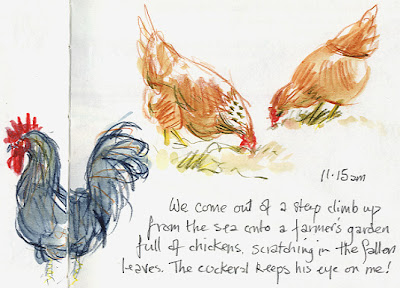 11.15am
We come out of a steep climb up
from the sea onto a farmer's garden
full of chickens, scratching in the fallen
leaves. The cockerel keeps his eye on me!